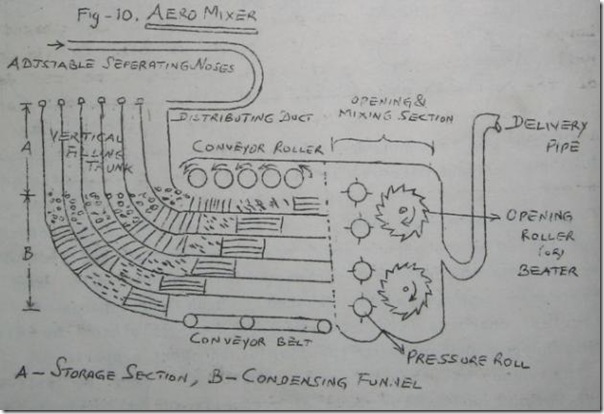 Fig-10. AERO MIXER
ADJSTABLE SEFERATING NOSES
OPENING &
MIXING SECTION
DISTRIBUTING DUCT
CONVEYOR ROLLER
DELIVERY
PIPE
A
VERTICAL
FILLING
TRUNK
B
OPENING
ROLLER
(or)
BEATER
CONVEYOR BELT
PRESSURE ROLL
A - STORAGE SECTION, B - CONDENSING FUNNEL